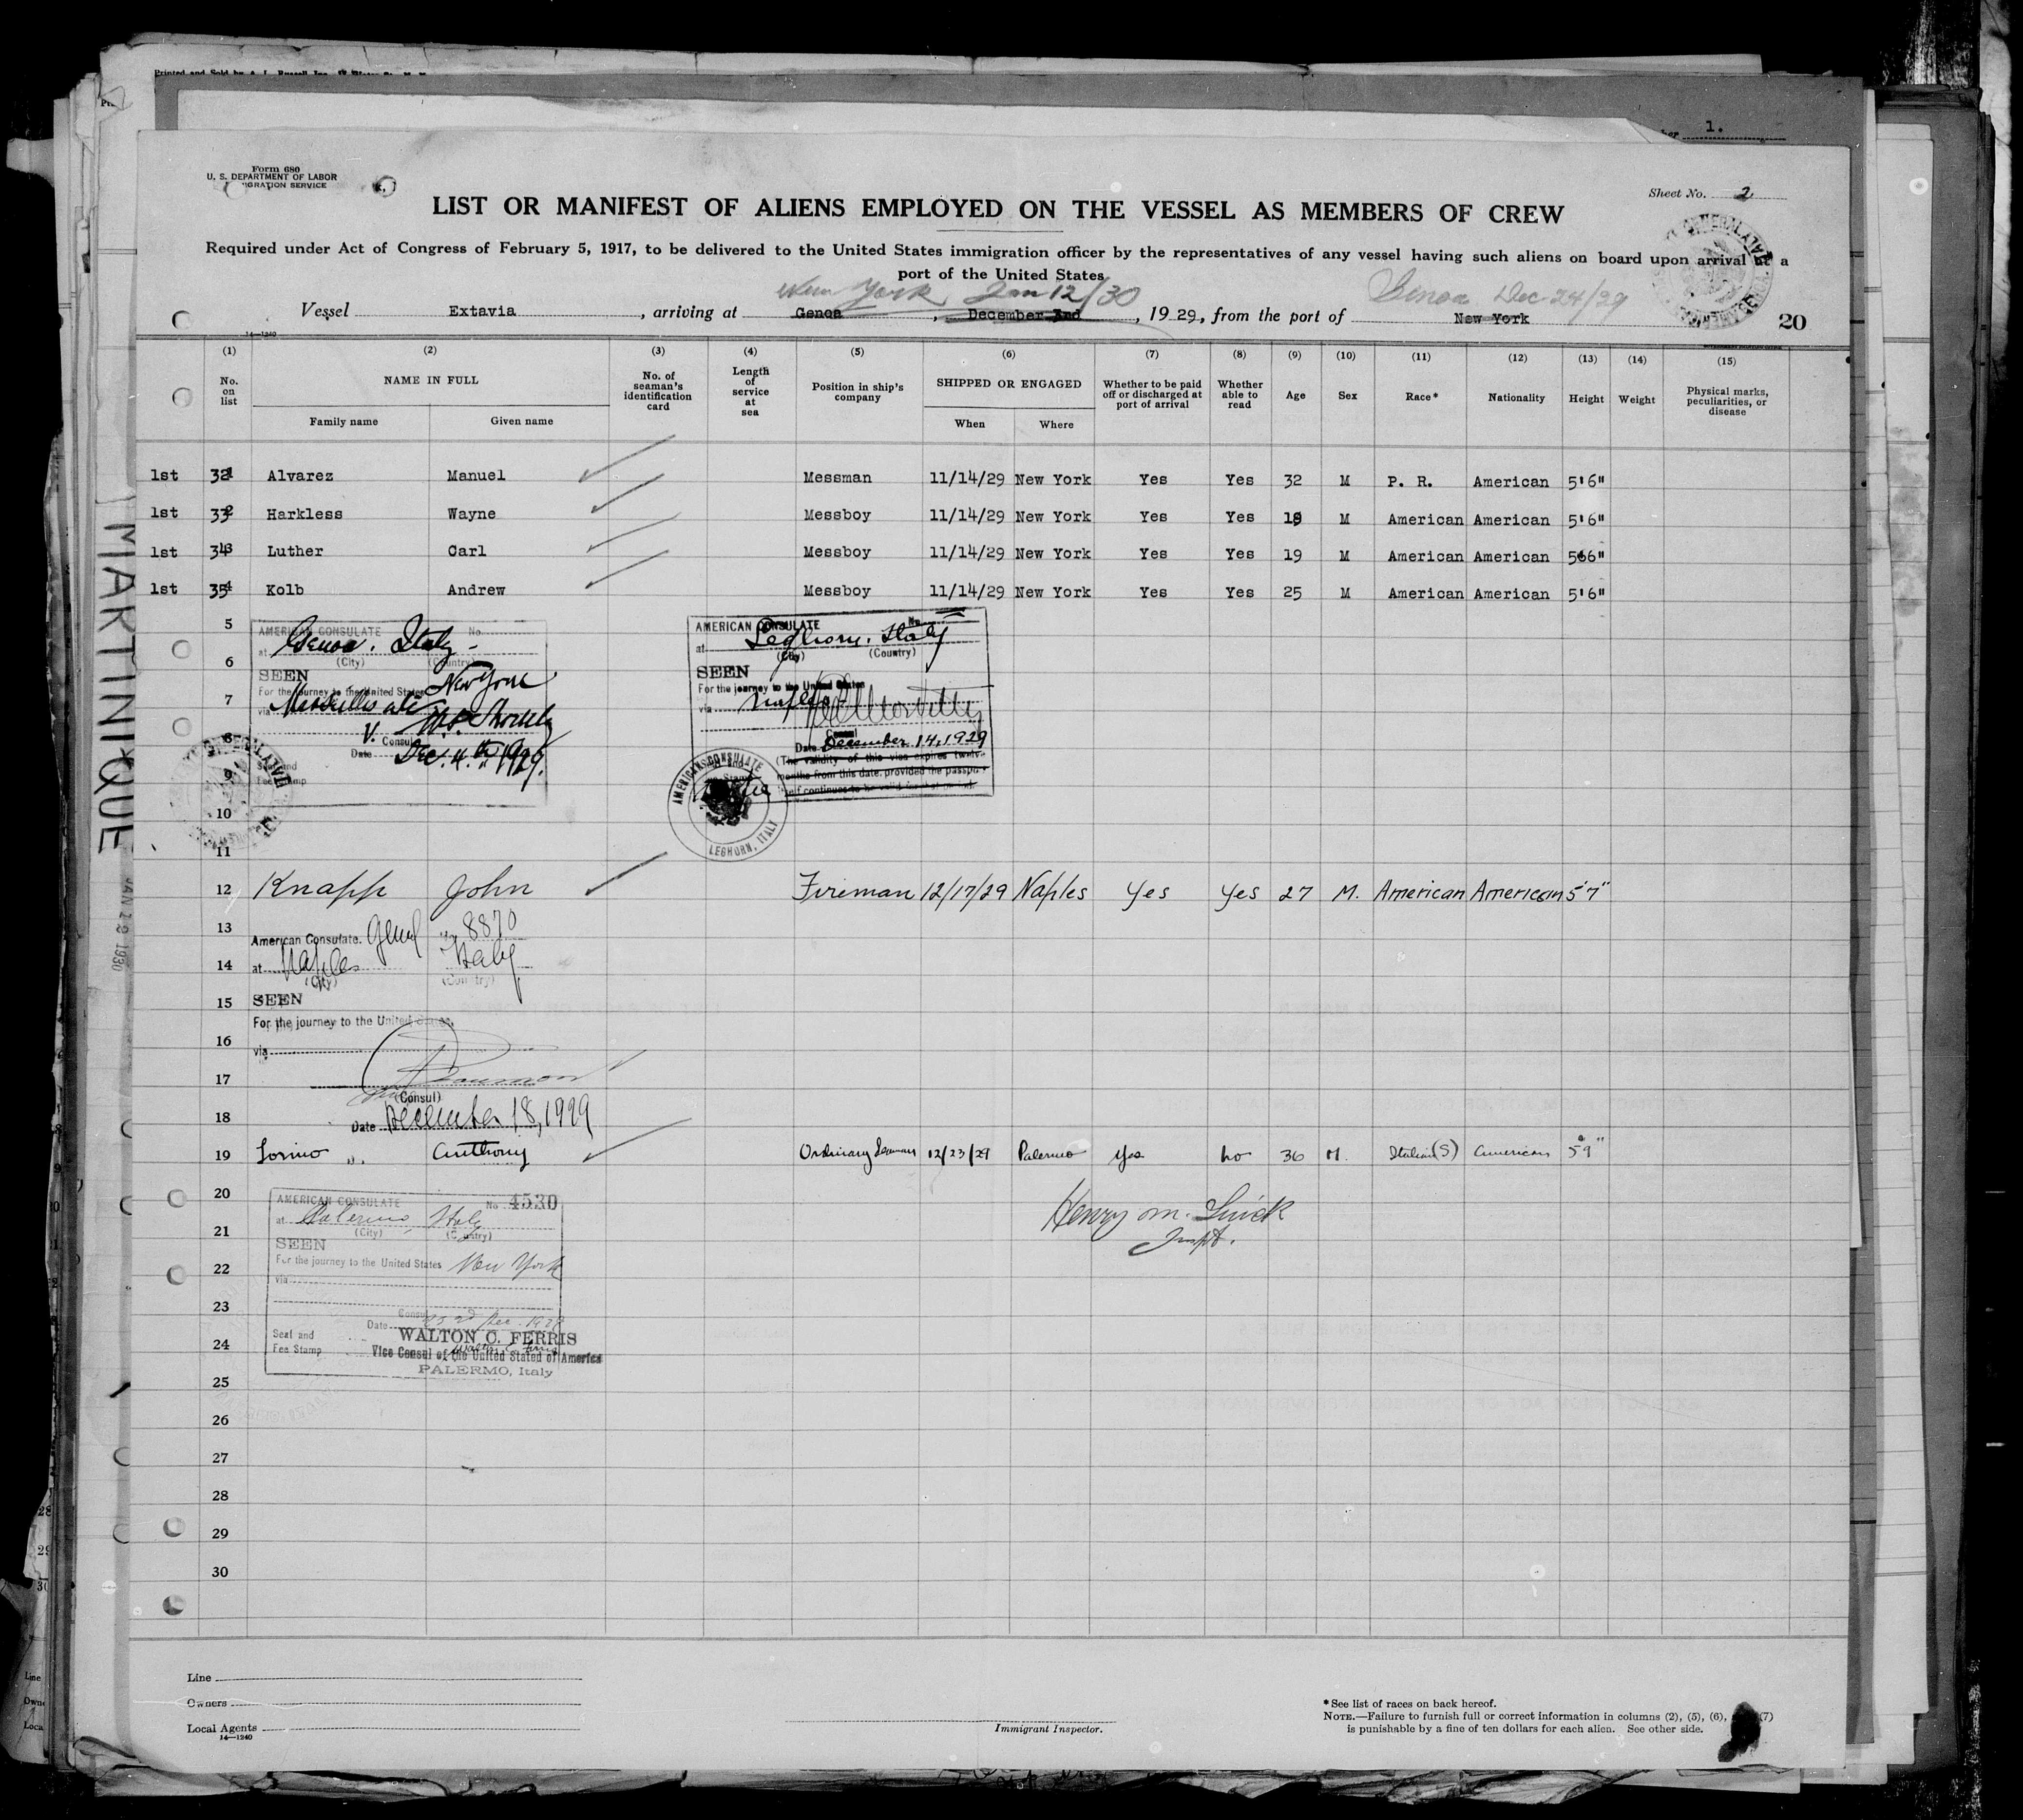 Printed and Sold by
1.
Form 680
U. S. DEPARTMENT OF LABOR
IGRATION SERVICE
Sheet No. 2
LIST OR MANIFEST OF ALIENS EMPLOYED ON THE VESSEL AS MEMBERS OF CREW
Required under Act of Congress of February 5, 1917, to be delivered to the United States immigration officer by the representatives of any vessel having such aliens on board upon arrival at a
port of the United States
New York Jan 12/30 Genoa Dec 24/29
Vessel Extavia, arriving at Genoa, December 2nd, 1929, from the port of New York
20
14—1240
(1) (2) (3) (4) (5) (6) (7) (8) (9) (10) (11) (12) (13) (14) (15)
No. on list NAME IN FULL No. of seaman's identification card Length of service at sea Position in ship's company SHIPPED OR ENGAGED Whether to be paid off or discharged at port of arrival Whether able to read Age Sex Race* Nationality Height Weight Physical marks, peculiarities, or disease
Family name Given name When Where
1st 32 1 Alvarez Manuel Messman 11/14/29 New York Yes Yes 32 M P. R. American 5'6"
1st 33 2 Harkless Wayne Messboy 11/14/29 New York Yes Yes 19 M American American 5'6"
1st 34 3 Luther Carl Messboy 11/14/29 New York Yes Yes 19 M American American 5'6"
1st 35 4 Kolb Andrew Messboy 11/14/29 New York Yes Yes 25 M American American 5'6"
MARTINIQUE
JAN 22 1930
5
6
7
8
9
10
11
AMERICAN CONSULATE No.
at Genoa, Italy
(City) (Country)
SEEN
For the journey to the United States New York
via Marseilles
V. Consul
Date Dec. 4th 1929.
Seal and
Fee Stamp
AMERICAN CONSULATE No.
at Leghorn, Italy
(City) (Country)
SEEN
For the journey to the United States
via Naples
Consul
Date December 14, 1929
(The validity of this visa expires twelve
months from this date, provided the passport
itself continues to be valid for that period.
AMERICAN CONSULATE
LEGHORN, ITALY
12 Knapp John Fireman 12/17/29 Naples Yes Yes 27 M. American American 5'7"
13
14
15
16
17
18
American Consulate Genl No. 8870
at Naples Italy
(City) (Country)
SEEN
For the journey to the United States,
via
(Consul)
Date December 18, 1929
19 Anthony Ordinary Seaman 12/23/29 Palermo Yes No 36 M. Italian (S) American 5'9"
Henry M.
Inspt.
20
21
22
23
24
25
26
27
28
29
30
AMERICAN CONSULATE No. 4530
at Palermo, Italy
(City) (Country)
SEEN
For the journey to the United States New York
via
Consul
Date 23rd Dec. 1929
WALTON C. FERRIS
Seal and
Fee Stamp
Vice Consul of the United States of America
PALERMO, Italy
Line
Owners
Local Agents
14—1240
Immigrant Inspector.
*See list of races on back hereof.
NOTE.—Failure to furnish full or correct information in columns (2), (5), (6), (7)
is punishable by a fine of ten dollars for each alien. See other side.